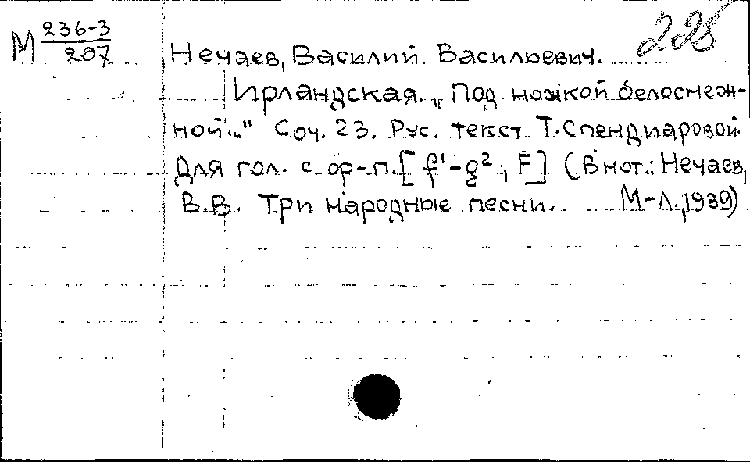 М 236-3/207
228
Нечаев, Василий Васильевич.
Ирландская. „Под ножкой белоснеж-
ной..." Соч. 23. Рус. текст Т. Спендиаровой.
Для гол. с ф-п. [f¹-g²; F] (В нот.: Нечаев,
В.В. Три народные песни. М-Л., 1939)